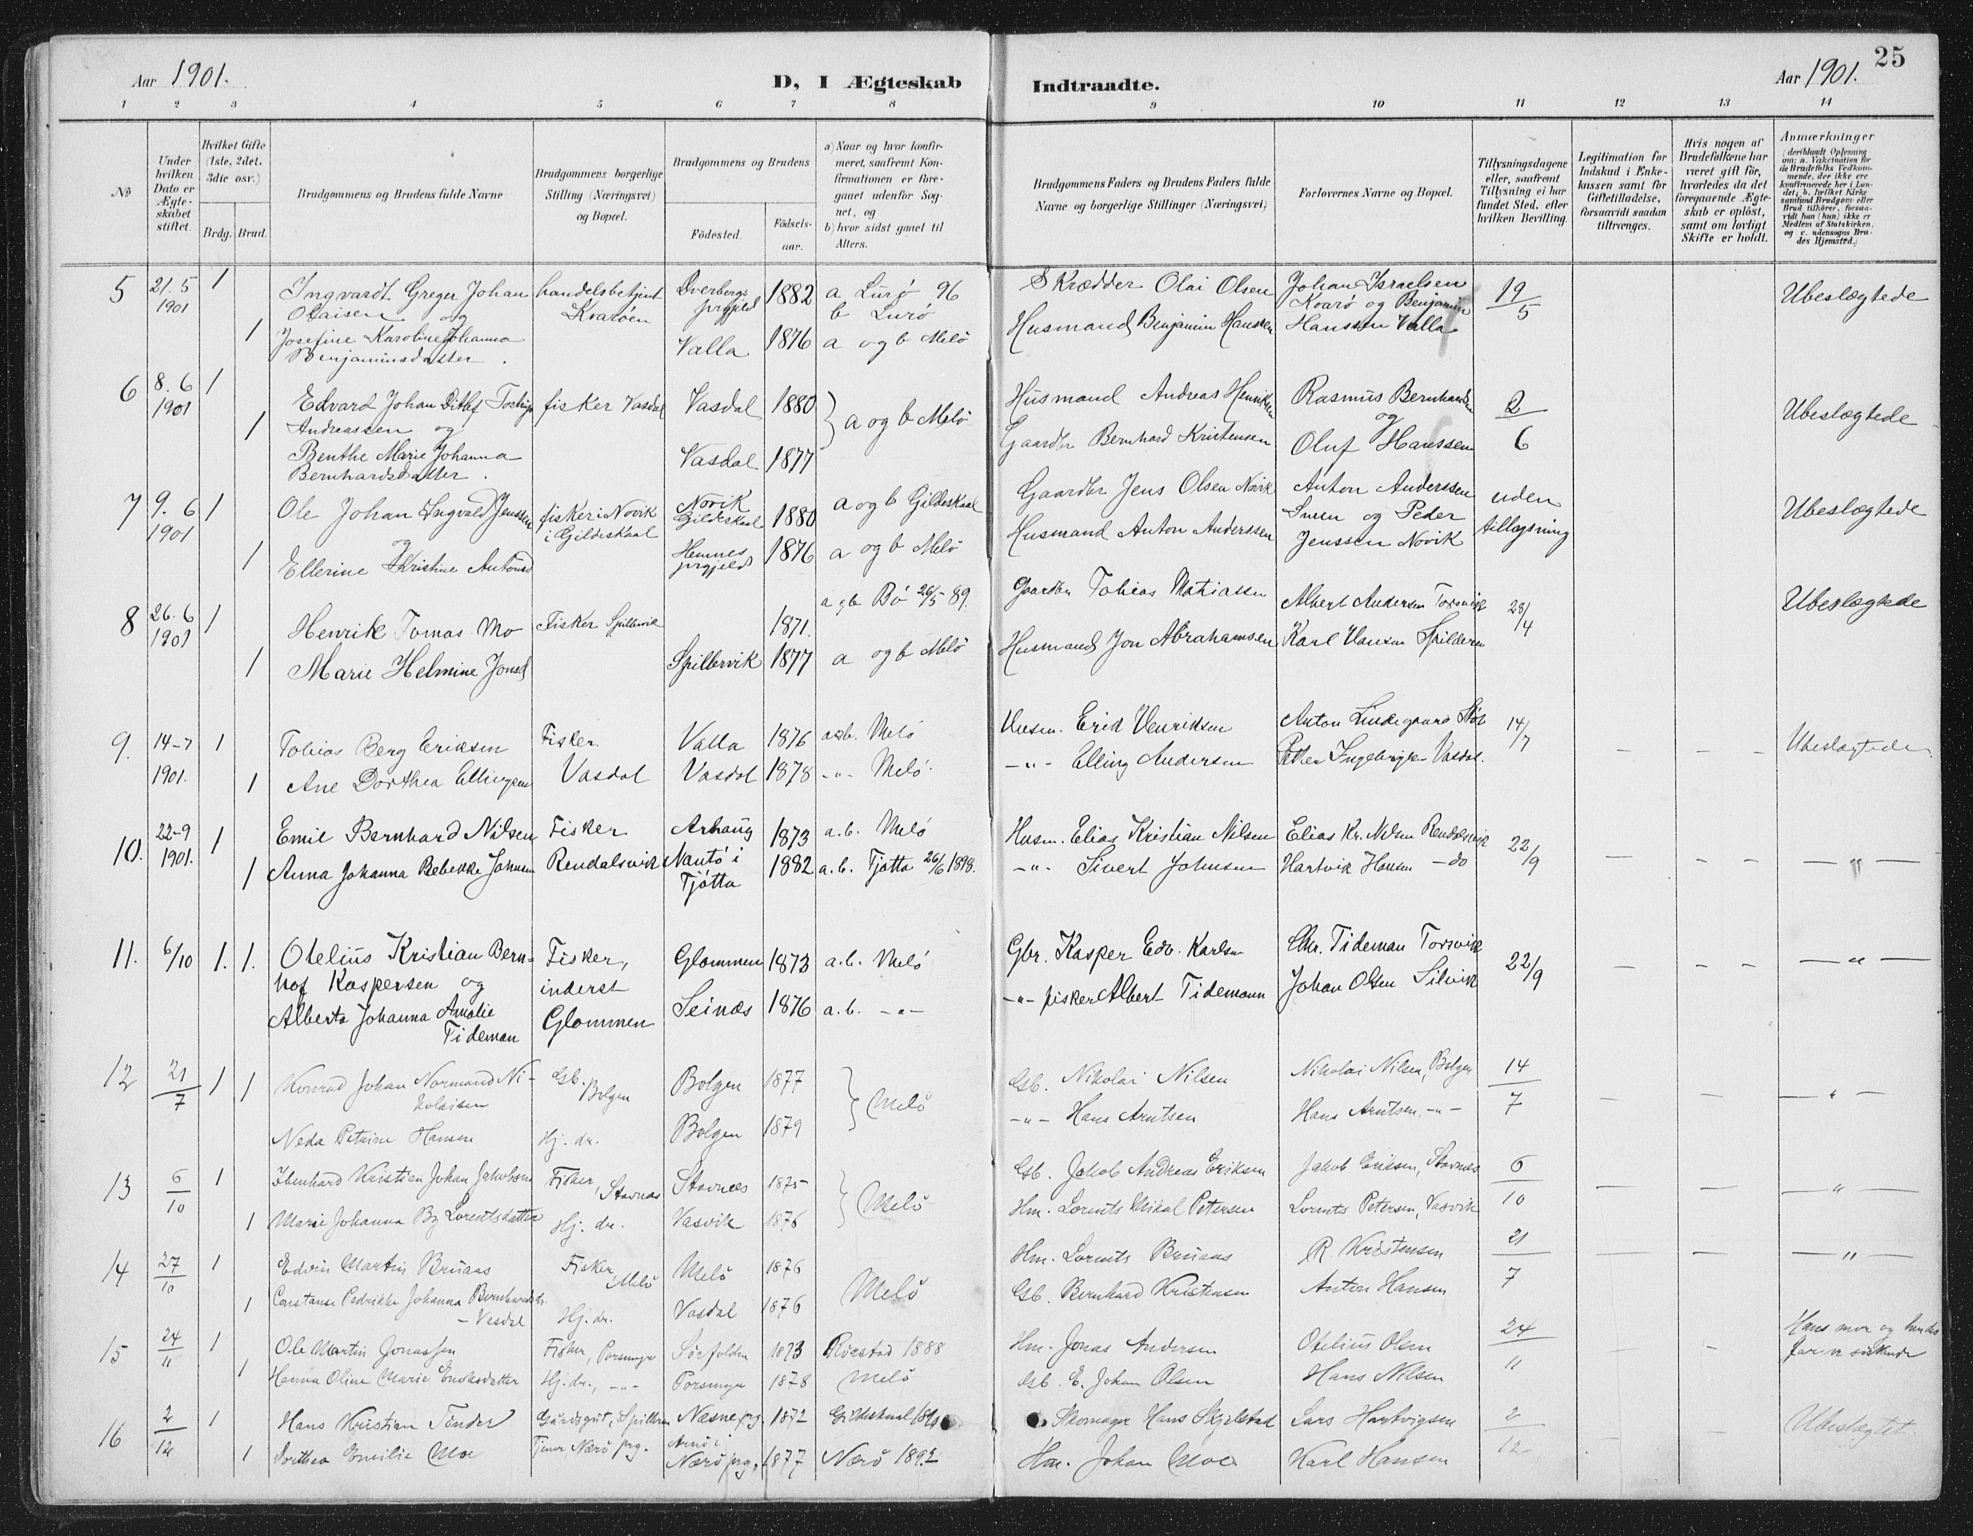 Aar 1901.
D, I Ægteskab
Indtraadte.
Aar 1901.
25
1 2 3 4 5 6 7 8 9 10 11 12 13 14
No
Under hvilken Dato er Ægteskabet stiftet.
Hvilket Gifte (1ste, 2det, 3die osv.)
Brdg. Brud.
Brudgommens og Brudens fulde Navne
Brudgommens borgerlige Stilling (Næringsvei) og Bopæl.
Brudgommens og Brudens
Fødested. Fødselsaar.
a) Naar og hvor konfirmeret, saafremt Konfirmationen er foregaaet udenfor Sognet, og
b) hvor sidst gaaet til Alters.
Brudgommens Faders og Brudens Faders fulde Navne og borgerlige Stillinger (Næringsvei)
Forlovernes Navne og Bopæl.
Tillysningsdagene eller, saafremt Tillysning ei har fundet Sted, efter hvilken Bevilling.
Legitimation for Indskud i Enkekassen samt for Giftetilladelse, forsaavidt saadan tiltrænges.
Hvis nogen af Brudefolkene har været gift før, hvorledes da det foregaaende Ægteskab er opløst, samt om lovligt Skifte er holdt.
Anmerkninger (deriblandt Oplysning om: a. Vakcination for de Brudefolks Vedkommende, der ikke ere konfirmerede her i Landet; b. hvilket Kirkesamfund Brudgom eller Brud tilhører, forsaavidt han (hun) ikke er Medlem af Statskirken, og c. udensogns Brudes Hjemsted.)
5 21. 5 1901 1 Ingvardt Greger Johan Olaisen og handelsbetjent Kvarøen Dverbergs prgjeld 1882 a Lurø 96 b Lurö Skrædder Olai Olsen Johan Israelsen Kvarø og Benjamin 19/5 Ubeslægtede
1 Josefine Karoline Johanna Benjaminsdatter. Valla 1876 a og b Melö Husmand Benjamin Hanssen Hanssen Valla
6 8. 6 1901 1 Edvard Johan Ditlef Andreassen og fisker Vasdal Vasdal 1880 a og b Melö Husmand Andreas Henriksen Rasmus Bernhardsen og 2/6 Ubeslægtede
1 Benthe Marie Johanna Bernhardsdatter. Vasdal 1877 Gaardbr Bernhard Kristensen Oluf Hanssen
7 9. 6 1901 1 Ole Johan Ingvald Jenssen og fisker i Novik i Gildeskaal Novik Gildeskaal 1880 a og b Gildeskaal Gaardbr Jens Olsen Novik Anton Anderssen og Peder uden tillysning Ubeslægtede
1 Ellerine Kristine Antonsd Hemnes prgjeld 1876 a og b Melö Husmand Anton Anderssen Jenssen Novik
8 26. 6 1901 1 Henrik Tomas Mo Fisker Spillervik 1871. a og b Bö 26/5 89. Gaardbr Tobias Mathiassen Albert Andersen Torsvik 28/4 Ubeslægtede
1 Marie Helmine Jonsd Spillervik 1877 a og b Melö Husmand Jon Abrahamsen Karl Hansen Spilderen
9. 14-7 1901. 1 Tobias Berg Eriksen Fisker Valla 1876 a.b. Melö Husm. Erik Henriksen Anton Lindegaard 14/7 — — — Ubeslægtede
1 Ane Dorthea Ellingsen Vasdal Vasdal 1878 -"- Melö. -"- Elling Andersen Peter Ingebrigtsen Vasdal.
10. 22-9 1901. 1 Emil Bernhard Nilsen Fisker Arhaug 1873 a.b. Melö Husm. Elias Kristian Nilsen Elias Kr. Nilsen Rendalsvik 22/9 — — — — " —
1 Anna Johanna Rebekke Johnsen Rendalsvik Nautö i Tjötta 1882 a.b. Tjotta 26/6 1898. -"- Sivert Johnsen Hartvik Hansen - do
11. 6/10 1. 1. Otelius Kristian Bernhof Kaspersen og Fisker, inderst Glommen 1873 a.b. Melö Gbr. Kasper Edv. Karlsen Chr. Tideman Torsvik 22/9 — — — — " —
Alberta Johanna Amalie Tideman Glommen Seinæs 1876 a.b. -"- -"- fisker Albert Tidemann Johan Olsen Silvik
12 21/7 1 1 Konrad Johan Normand Nikolaisen Gb. Bolgen Bolgen 1877 Melö Gb. Nikolai Nilsen Nikolai Nilsen, Bolgen 14/7 — — — " —
Neda Petrine Hansen Hj. dr. Bolgen 1879 -"- Hans Arntsen Hans Arntsen -"-
13 6/10 1 Ebenhard Kristian Johan Jakobsen Fisker, Stavnes Stavnes 1875 Melö Gb. Jakob Andreas Eriksen Jakob Eriksen, Stavnes 6/10 — — — " —
1 Marie Johanna By Lorentsdatter Hj. dr. Vasvik 1876 Hm. Lornts Mikal Petersen Lornts Petersen, Vasvik
14 27/10 1 Edvin Martin Bruaas Fisker, Melö Melö 1876 Melö Hm. Lornts Bruaas R. Kristensen 21/7 — — " —
1 Constanse Fredrikke Johanna Bernhardsdr. - Vasdal Hj. dr. Vasdal 1876 Gb. Bernhard Kristensen Anton Hansen
15 24/11 1 Ole Martin Jonassen Fisker, Porsmyr Sørfolden 1873 Rørstad 1888 Hm. Jonas Andersen Otelius Olsen 24/11 — — Hans mor og hendes far er søskende
1 Hanna Oline Marie Enoksdatter Hj. dr., -"- Porsmyr 1878 Melö Gb. E. Johan Olsen Hans Nilsen
16 2/12 1 Hans Kristian Tønder Gårdsgut, Næsne prg. 1872 Gildeskaal Skomager Hans Skjelstad Lars Hartvigsen 2/12 Ubeslægtet
1 Dorthea Emilie Moe Tjener Nærö prg. Arnö i Nærö prg. 1877 Nærö 1892 Hm. Johan Moe Karl Hansen